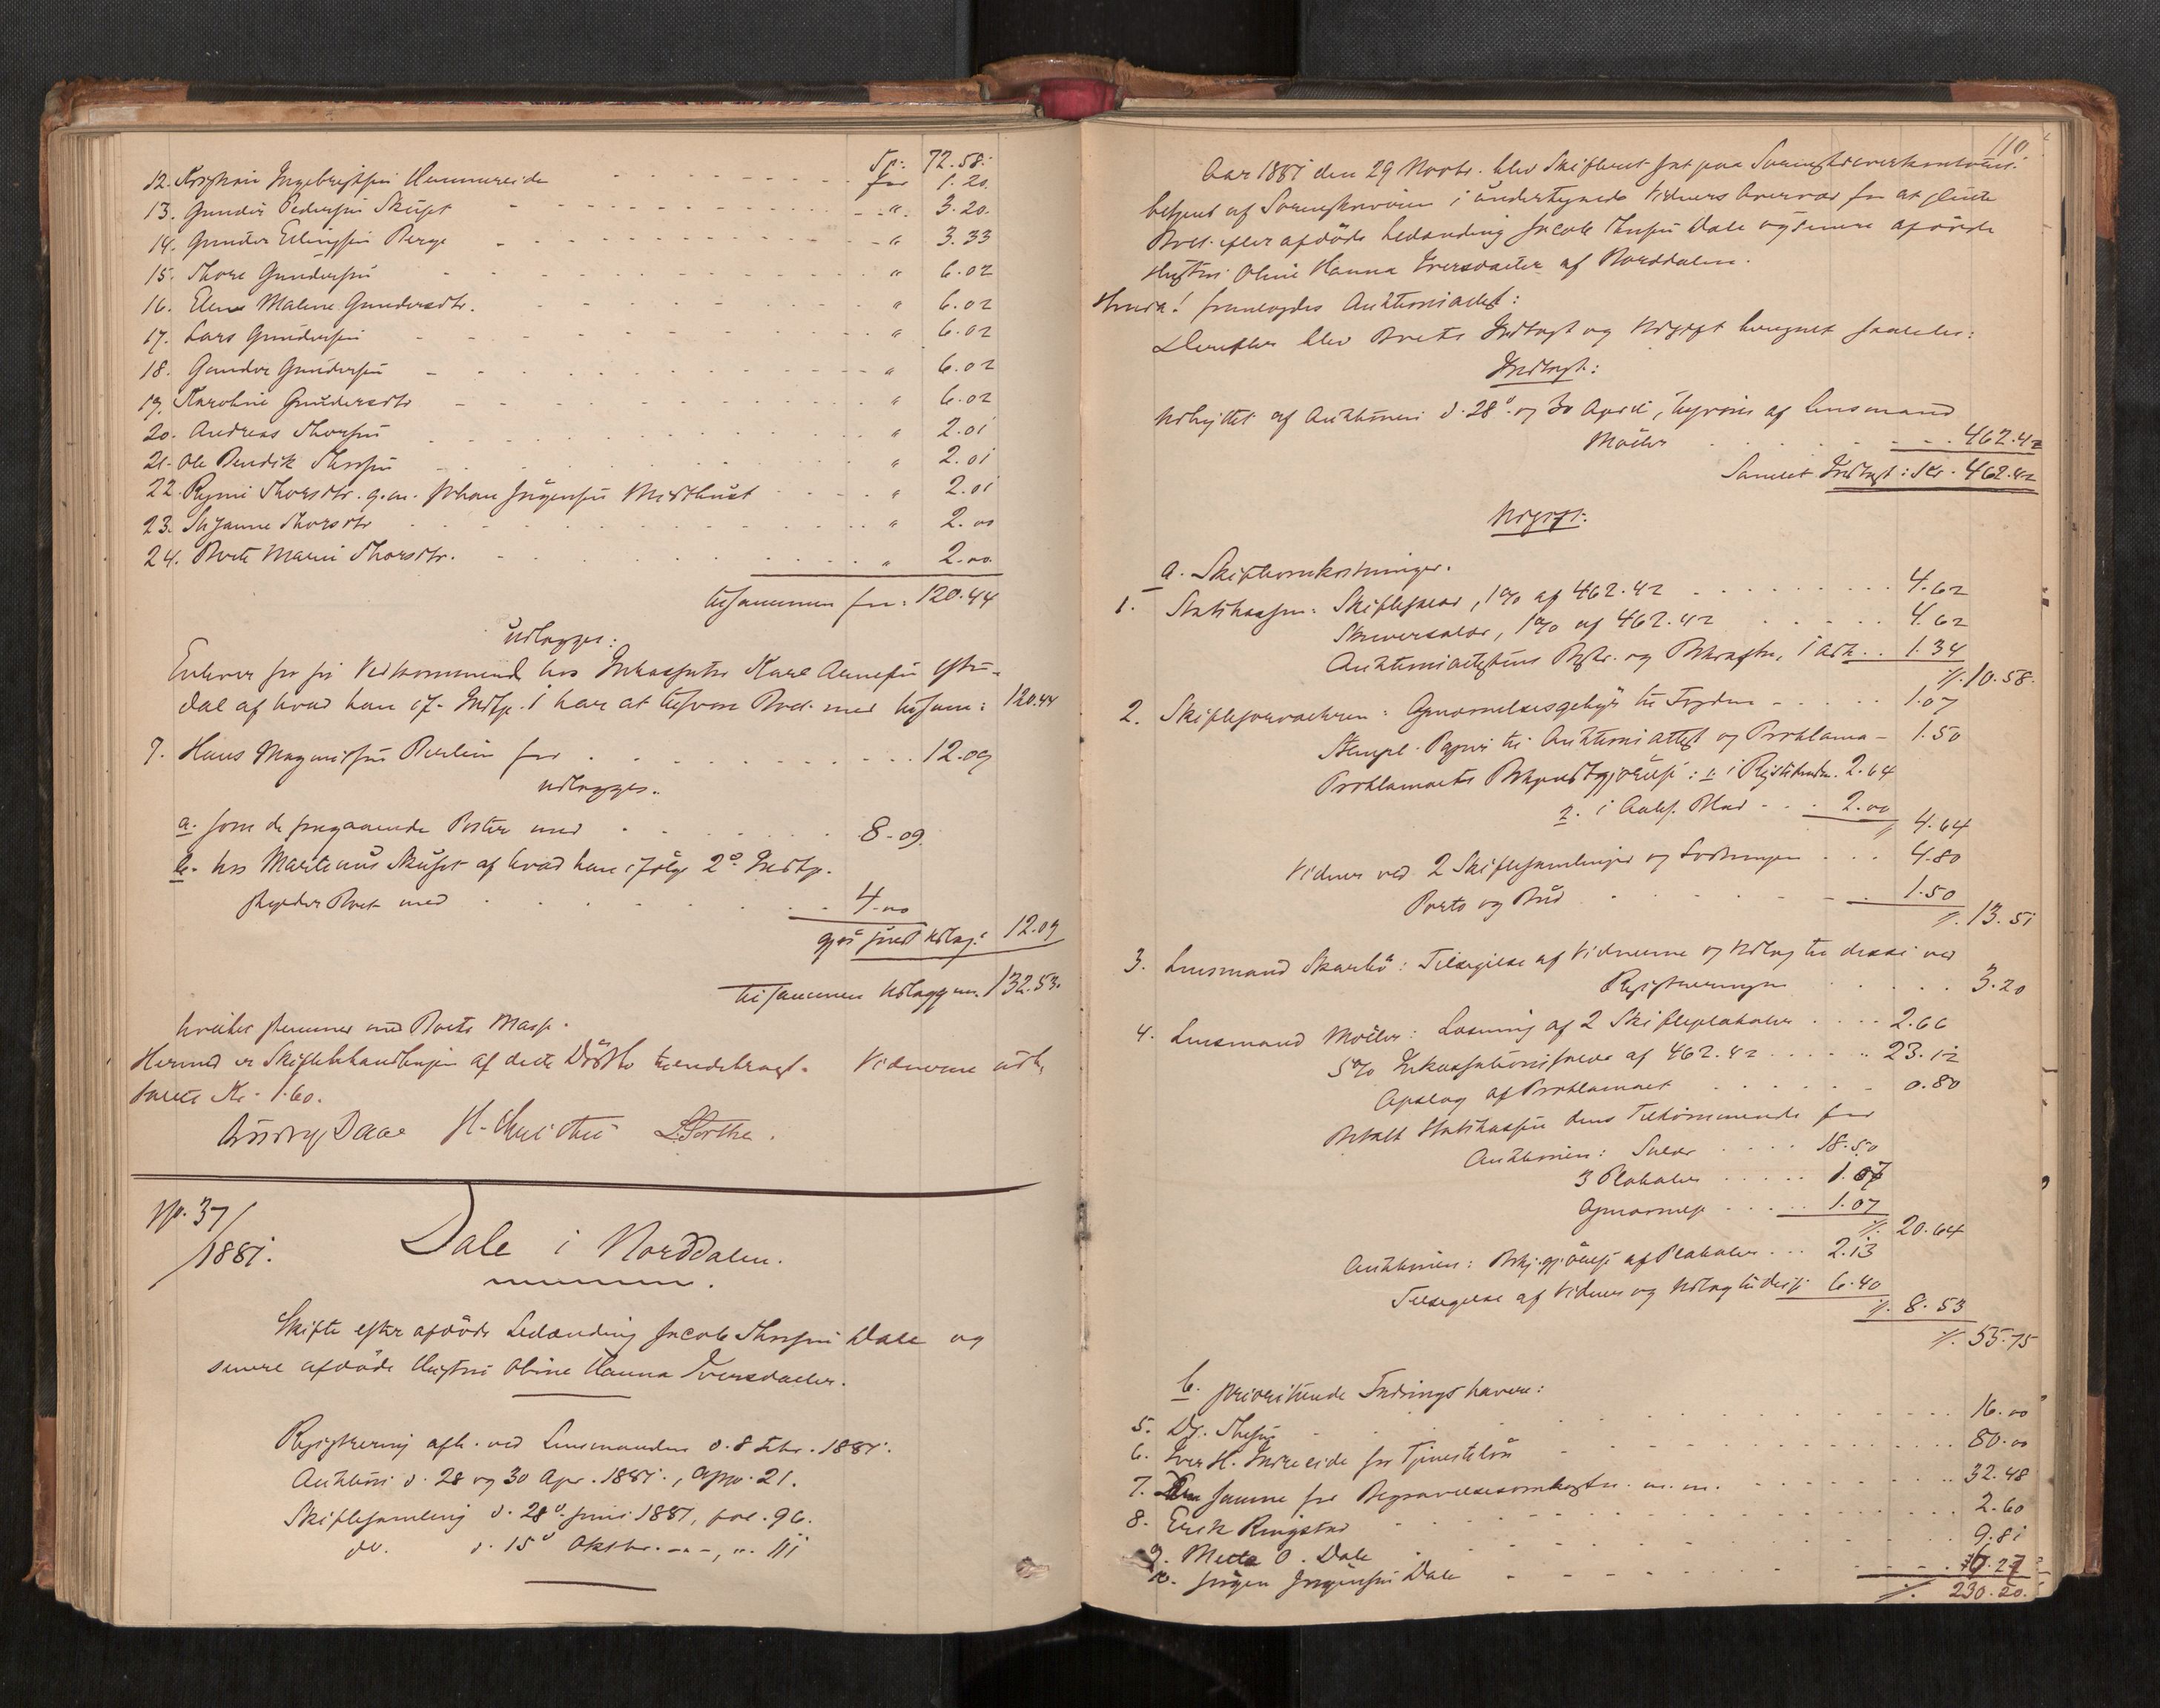 Tr: 72.58.
12. Kristian Ingebrigtsen Hemmereide for 1.20
13. Gunder Pedersen Skuset " 3.20
14. Gunder Ellingsen Berge " 3.33
15. Thore Gundersen " 6.02
16. Elen Malene Gundersdtr. " 6.02
17. Lars Gundersen " 6.02
18. Gunder Gundersen " 6.02
19. Karoline Gundersdtr " 6.02
20. Andreas Thorsen " 2.01
21. Ole Bendik Thorsen " 2.01
22. Thorsdtr. g.m. Johan Jörgensen " 2.01
23. Susanne Thorsdtr " 2.00
24. Berte Marie Thorsdtr. " 2.00
tilsammen for: 120.44
udlægges:
Enhver for sit Vedkommende hos Karl Arnesen
dal af hvad han if. Indtg. 1 har at tilsvare Boet med tilsam: 120.44
9. Hans Magnus for 12.09
udlægges.
a. som de foregaaende Poster med 8.09
b. hos Martinus Skuset af hvad han ifölge 2° Indtg.
skylder Boet med 4.00
Udlæg: 12.09
tilsammen Udlagt 132.53.
hvilket stemmer med Boets Masse.
Hermed er Skiftebehandlingen af dette Dödsbo tilendebragt. Vidnerne
Kr. 1.60.
Daae H. L.
No. 37/
/1881.
Dale i Norddalen.
Skifte efter afdöde Ledænding Jacob Thorsen Dale og
senere afdöde Hustru Oline Hanna Iversdatter.
Registrering afh. ved Lensmanden d. 8 Febr. 1881.
Auktion d. 28 og 30 Apr. 1881, 21.
Skiftesamling d. 28° Juni 1881, fol. 96.
do. d. 15° Oktbr. - - , ". 111
110
Aar 1881 den 29 Novbr. blev Skifteret sat paa Sorenskriverkontoret
betjent af Sorenskriveren i undertegnede Vidners Overvær for at slutte
Boet efter afdöde Ledænding Jacob Thorsen Dale og senere afdöde
Hustru Oline Hanna Iversdatter af Norddalen.
fremlagdes Auktionsattest:
Derefter blev Boets Indtægt og Udgift beregnet saaledes:
Indtægt:
Udbyttet af Auktionen d. 28° og 30 April, af Lensmand
Möller 462.42
Samlet Indtægt: Kr. 462.42
Udgift:
a. Skifteomkostninger.
1. Statskassen: Skiftesalær, 1% af 462.42 4.62
Skriversalær, 1% af 462.42 4.62
Auktionsattestens Beskr. og Bekræftn. 1 Ark 1.34
/. 10.58.
2. Skifteforvalteren: Opnævnelsesgebyr til Fogden 1.07
Stempl. Papir til Auktionsattest og Proklama 1.50
Proklamaets Bekjendtgjörelse: 1. i Rigstidende. 2.64
2. i Aales. Blad 2.00
/. 4.64
Vidner ved 2 Skiftesamlinger og Slutningen 4.80
Porto og Bud 1.50
/. 13.51
3. Lensmand Skarbö: Tilsigelse af Vidnerne og Udlæg til disse ved
Registreringen 3.20
4. Lensmand Möller: Læsning af 2 Skifteplakater 2.66
5% Inkassationssalær af 462.42 23.12
Opslag af Proklamaet 0.80
Betalt Statskassen dens Tilkommende for
Auktionen: Salær 18.50
3 Plakater 1.07
Opnævnelse 1.07
/. 20.64
Auktionen: Bekj.gjörelse af Plakater 2.13
Tilsigelse af Vidner og Udlæg til disse 6.40
/. 8.53
/. 55.75
b. prioriterede Fordringshavere:
5. Dr. 16.00
6. Iver H. Indreeide for Tjenestelön 80.00
7. Den samme for Begravelsesomkostn. m.m. 32.48
8. Erik Ringstad 2.60
9. Mette O. Dale 9.81
10. Jörgen Jörgensen Dale 27
/. 230.20.